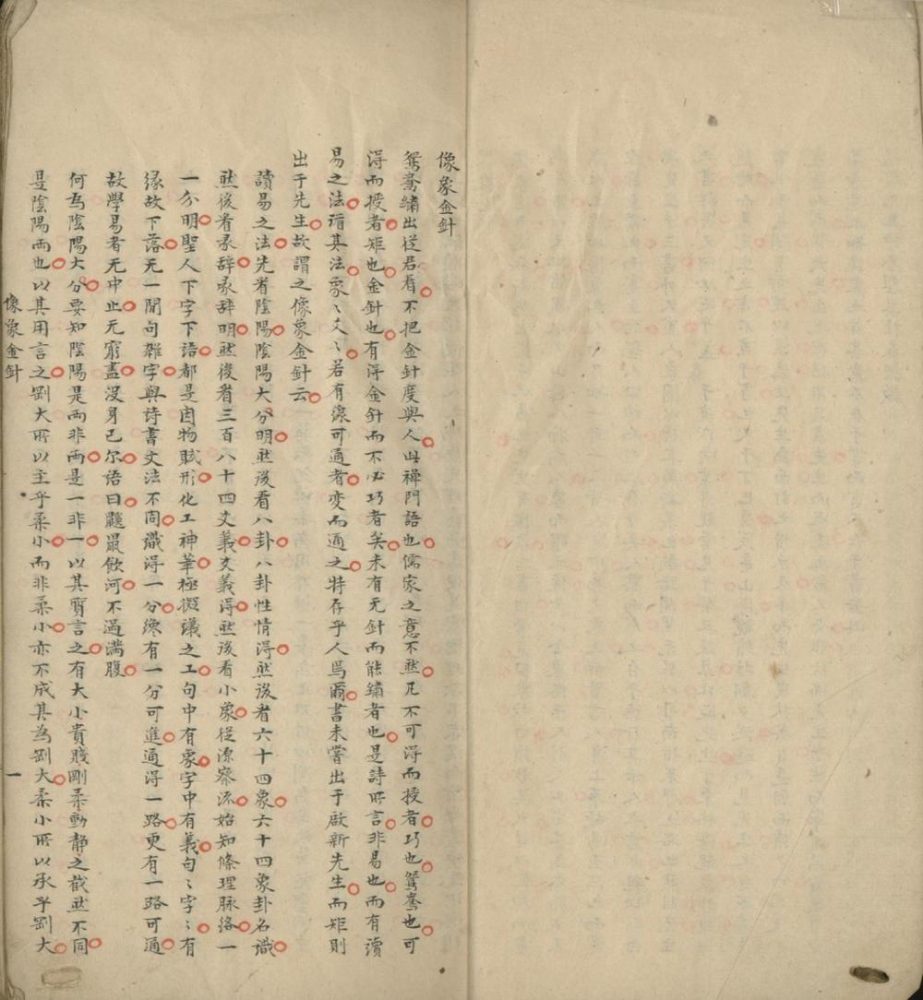 像象金針
鴛鴦繡出從君看不把金針度與人此禪門語也儒家之意不然凡不可得而授者巧也鴛鴦也可
得而授者矩也金針也有得金針而不必巧者矣未有无針而能繡者也是詩所言非易也而有讀
易之法循其法象〻爻〻若有緣可通者变而通之特存乎人焉爾書未嘗出于啟新先生而矩則
出于先生故謂之像象金針云
讀易之法先看陰陽陰陽大分明然後看八卦八卦性情得然後看六十四象六十四象卦名識
然後看彖辞彖辞明然後看三百八十四爻義爻義得然後看小象從源察流始知條理脉洛一
一分明聖人下字下語都是因物賦形化工神筆極擬議之工句中有象字中有義句〻字〻有
緣故下落无一閒句雜字與詩書文法不同識得一分纔有一分可進通得一路更有一路可通
故學易者无中止无窮盡没身已尔语曰鼴鼠飲河不過满腹
何為陰陽大分要知陰陽是兩非兩是一非一以其質言之有大小貴賤剛柔動靜之截然不同
是陰陽兩也以其用言之剛大所以主乎柔小而非柔小亦不成其為剛大柔小所以承乎剛大
像象金針
一